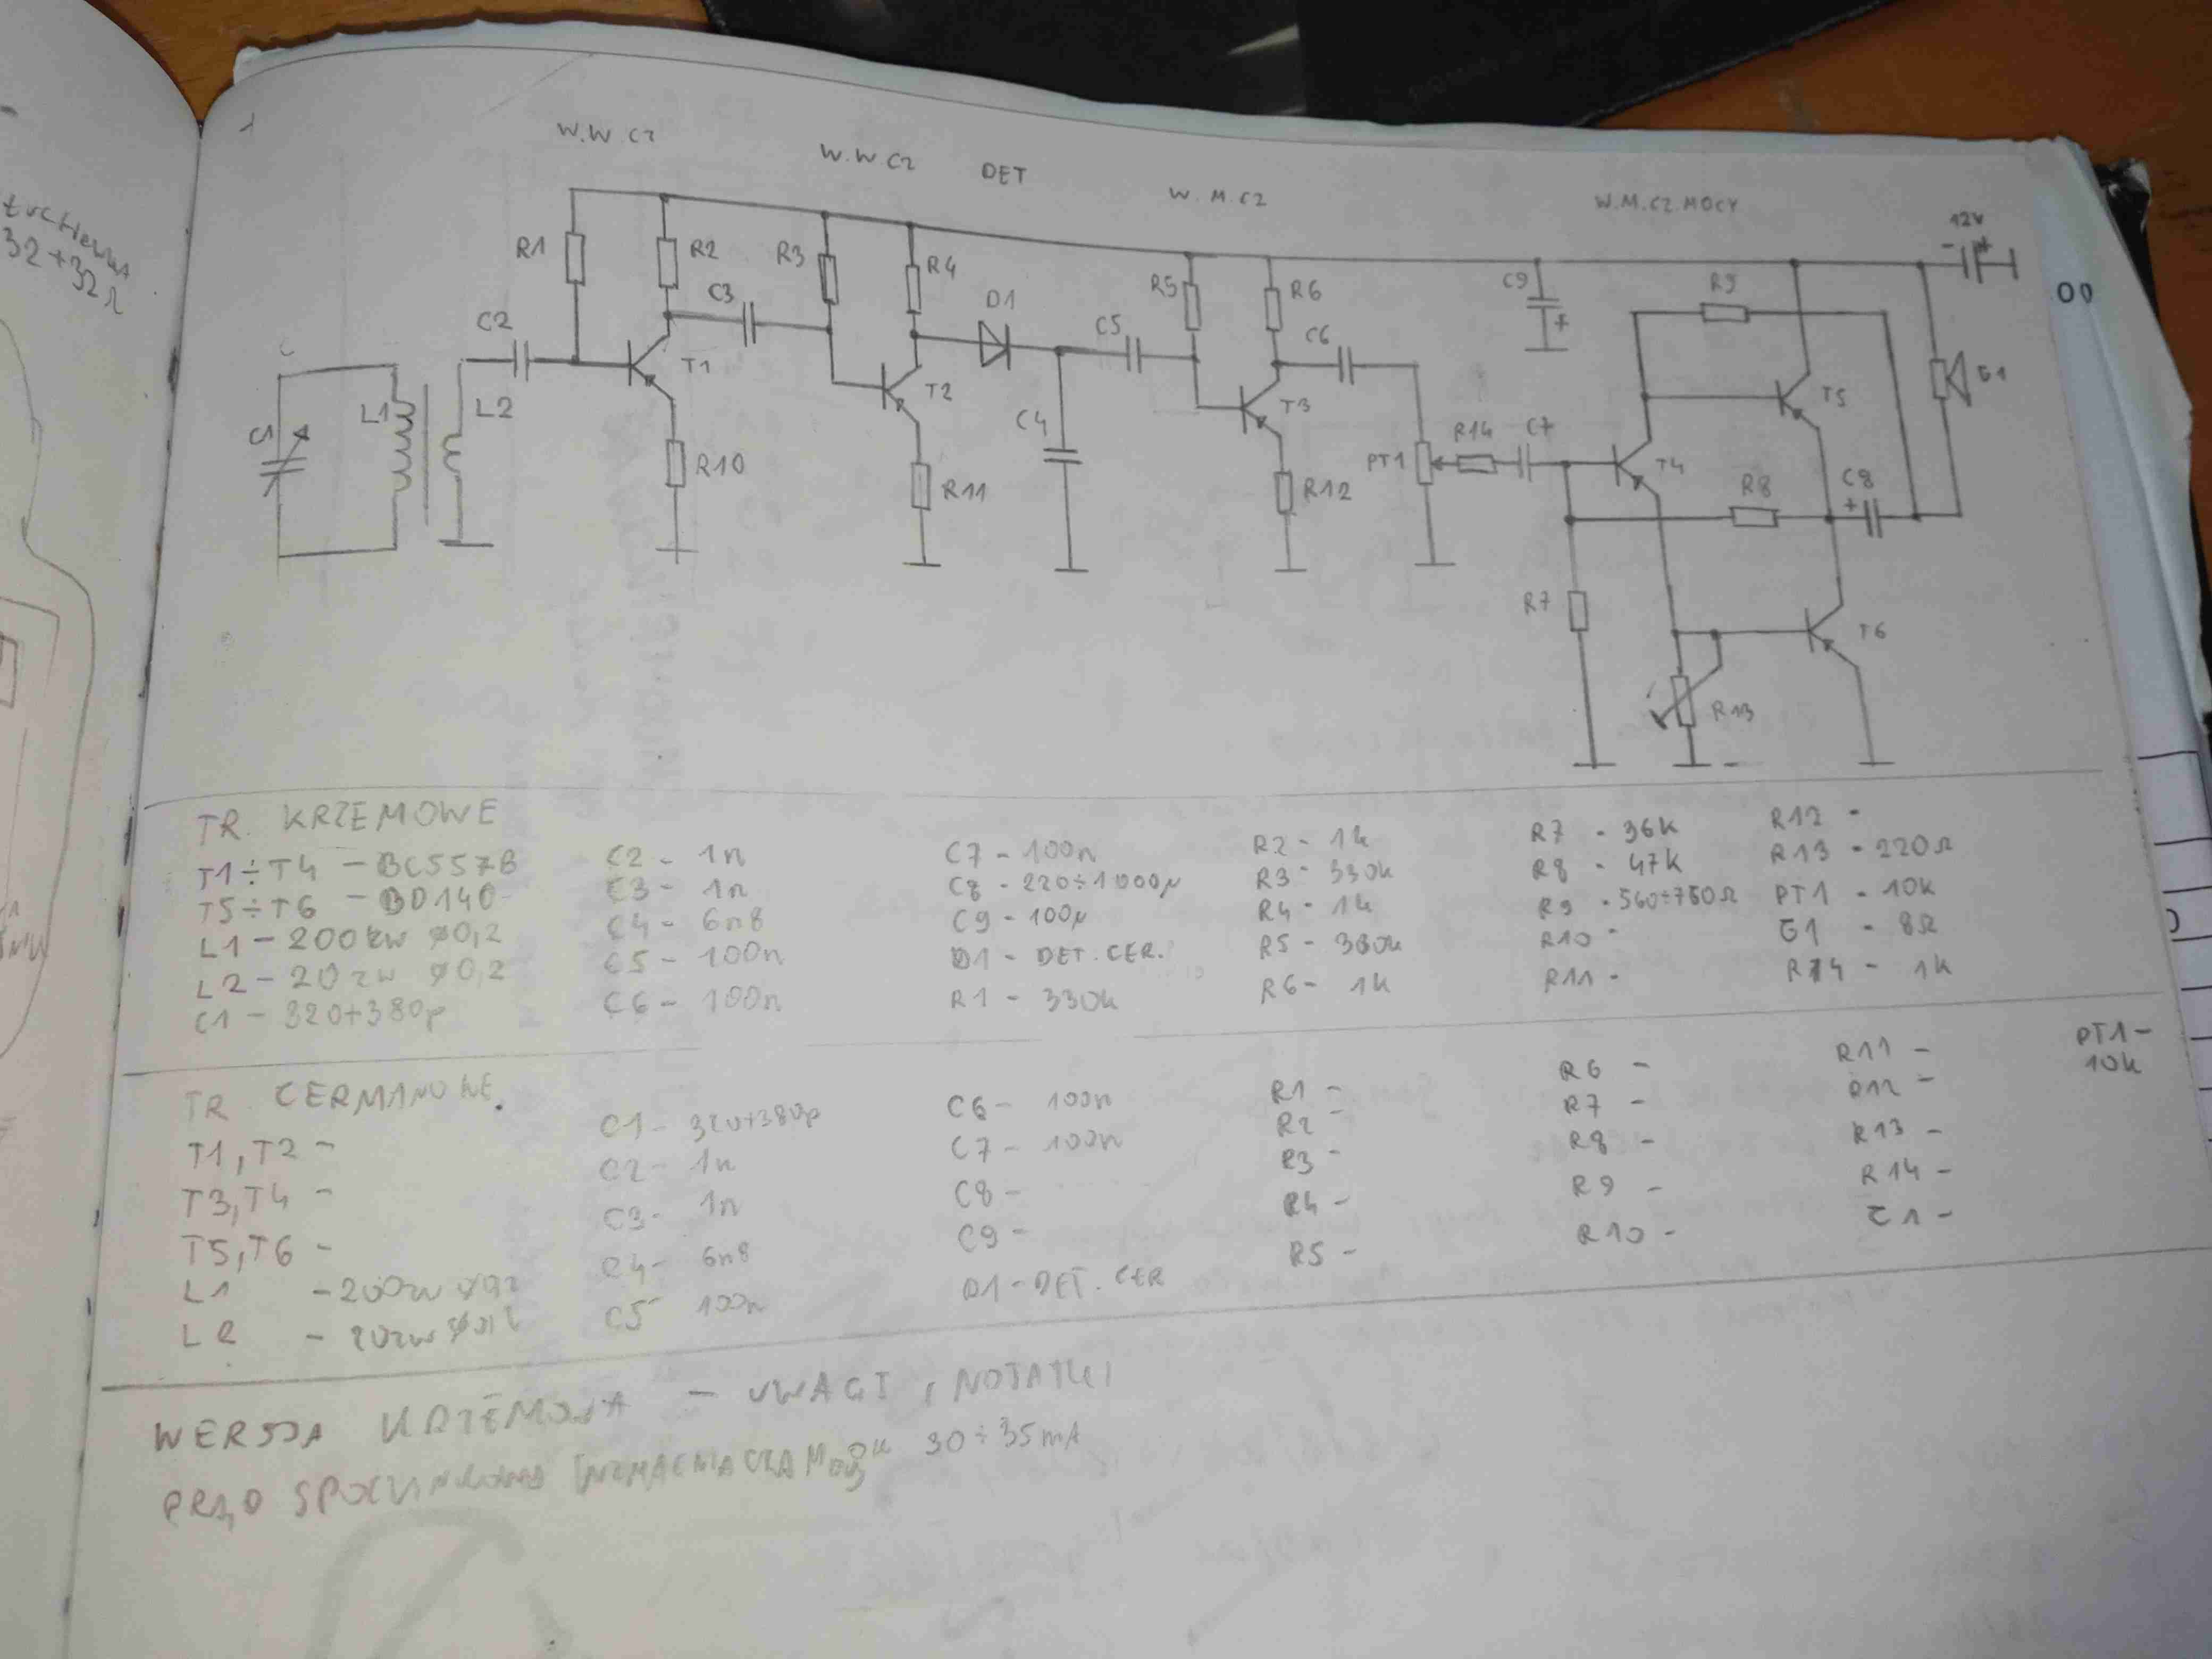 32+32Ω
W.W CZ
W.W CZ
DET
W.M.CZ
W.M.CZ.MOCY
12V
- +
R1
R2
R3
R4
D1
R5
R6
C9
+
R9
C2
C3
C5
C6
T1
T2
T3
T5
G1
C1
L1
L2
C4
R10
R11
R12
PT1
R14
C7
T4
R8
C8
+
R7
T6
R13
00
TR. KRZEMOWE
T1÷T4 - BC557B
T5÷T6 - BD140
L1 - 200zw ø0,2
L2 - 20zw ø0,2
C1 - 320+380p
C2 - 1n
C3 - 1n
C4 - 6n8
C5 - 100n
C6 - 100n
C7 - 100n
C8 - 220÷1000µ
C9 - 100µ
D1 - DET. GER.
R1 - 330k
R2 - 1k
R3 - 330k
R4 - 1k
R5 - 330k
R6 - 1k
R7 - 36K
R8 - 47K
R9 - 560÷750Ω
R10 -
R11 -
R12 -
R13 - 220Ω
PT1 - 10k
G1 - 8Ω
R14 - 1k
TR GERMANOWE.
T1,T2 -
T3,T4 -
T5,T6 -
L1 - 200zw
L2 - 20zw
C1 - 320+380p
C2 - 1n
C3 - 1n
C4 - 6n8
C5 100n
C6 - 100n
C7 - 100n
C8 -
C9 -
D1 - DET. GER
R1 -
R2 -
R3 -
R4 -
R5 -
R6 -
R7 -
R8 -
R9 -
R10 -
R11 -
R12 -
R13 -
R14 -
G1 -
PT1 -
10k
WERSJA KRZEMOWA - UWAGI, NOTATKI
PRĄD SPOCZYNKOWY WZMACNIACZA MOCY 30÷35mA